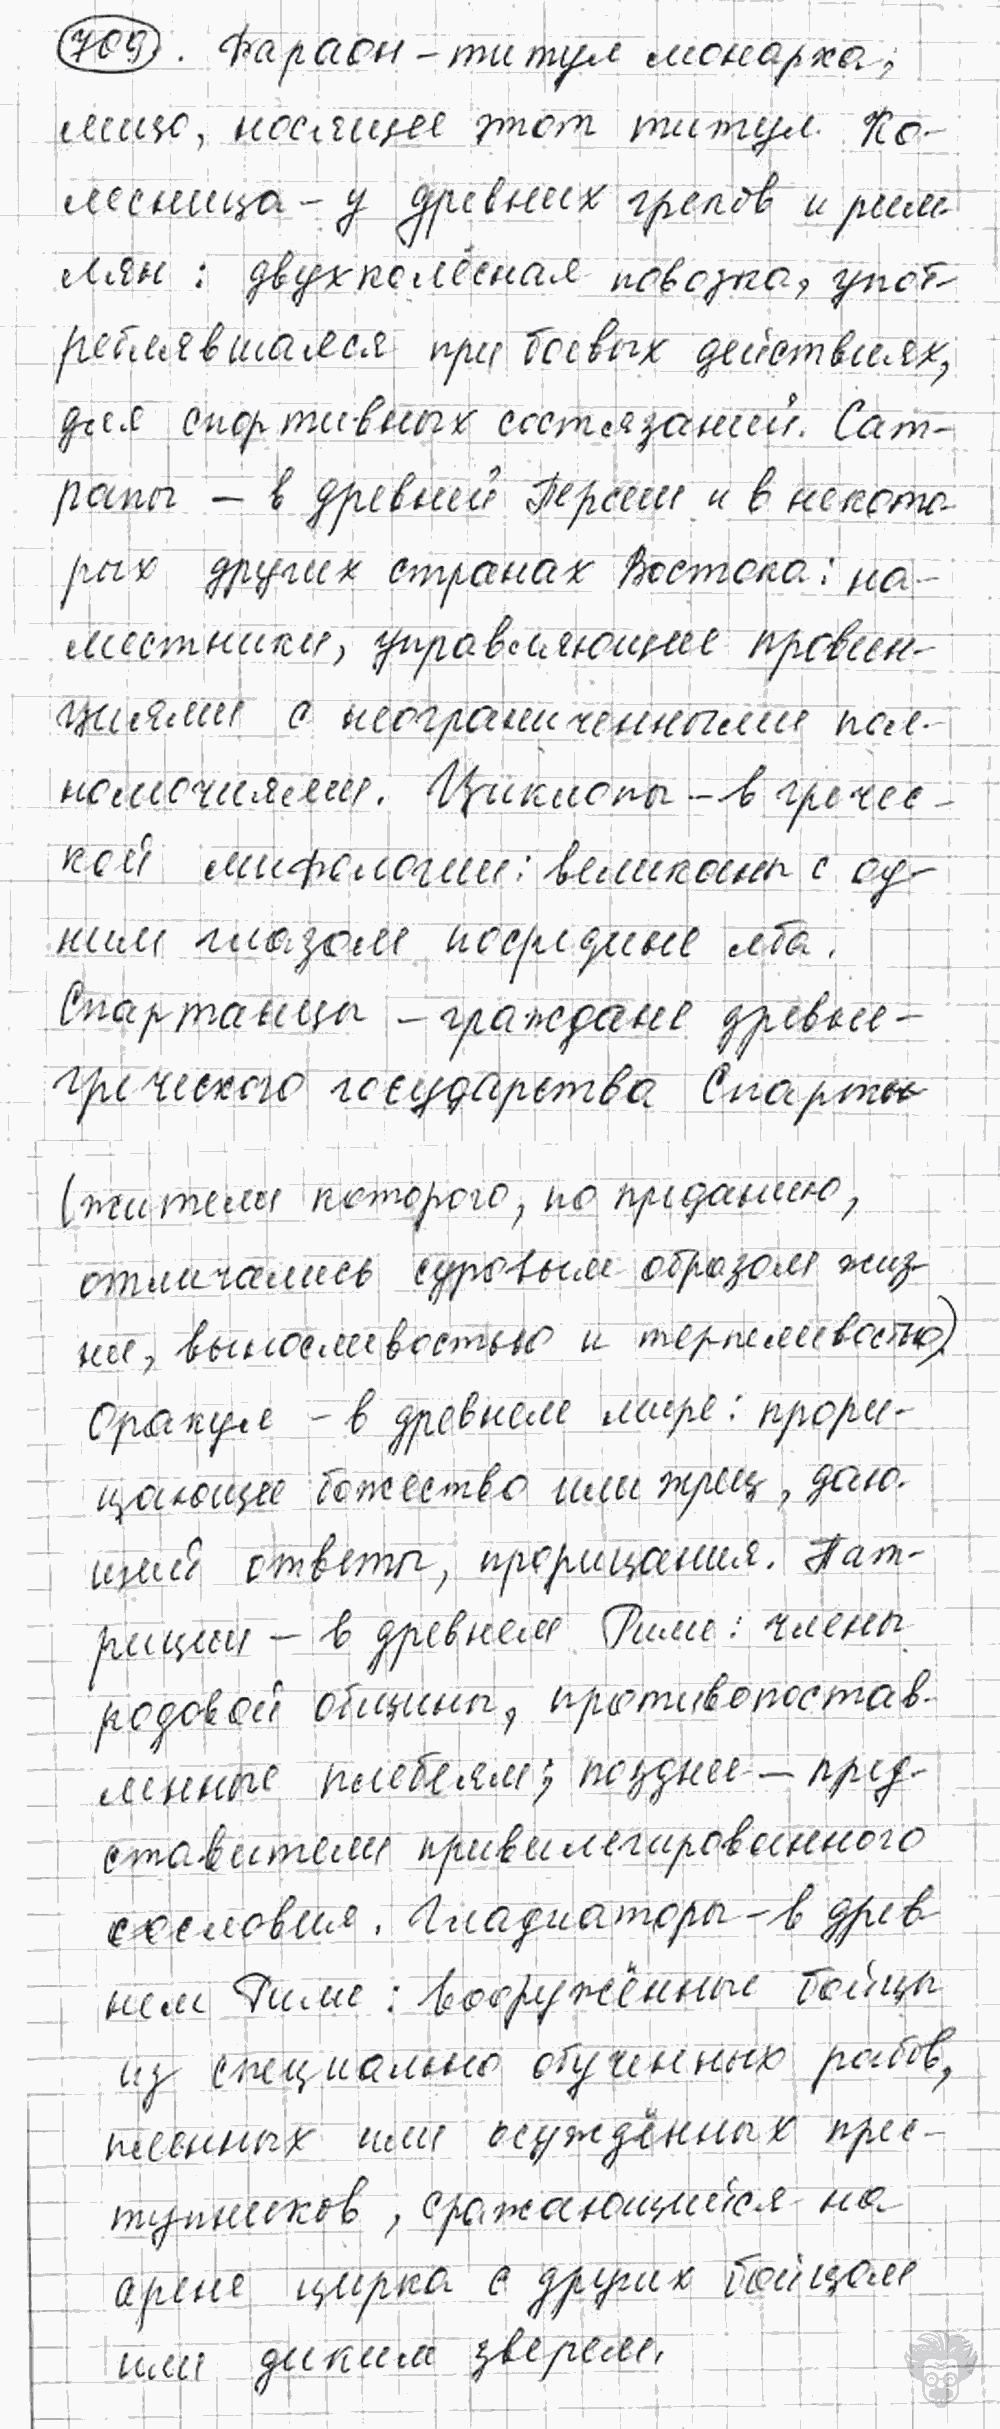 709. Фараон – титул монарха;
лицо, носящее этот титул. Ко-
лесница – у древних греков и рим-
лян: двухколёсная повозка, упот-
реблявшаяся при боевых действиях,
для спортивных состязаний. Сат-
рапы – в древней Персии и в некото
рых других странах Востока: на-
местники, управляющие провин-
циями с неограниченными пол-
номочиями. Циклопы – в гречес-
кой мифологии: великаны с од-
ним глазом посредине лба.
Спартанцы – граждане древне-
греческого государства Спарты
(жители которого, по преданию,
отличались суровым образом жиз-
ни, выносливостью и терпеливостью)
Оракул – в древнем мире: прори-
цающее божество или жрец, даю-
щий ответы, прорицания. Пат-
риции – в древнем Риме: члены
родовой общины, противопостав-
ленные плебеям; позднее – пред-
ставители привилегированного
сословия. Гладиаторы – в древ-
нем Риме: вооружённые бойцы
из специально обученных рабов,
пленных или осуждённых прес-
тупников, сражающийся на
арене цирка с других бойцом
или диким зверем.